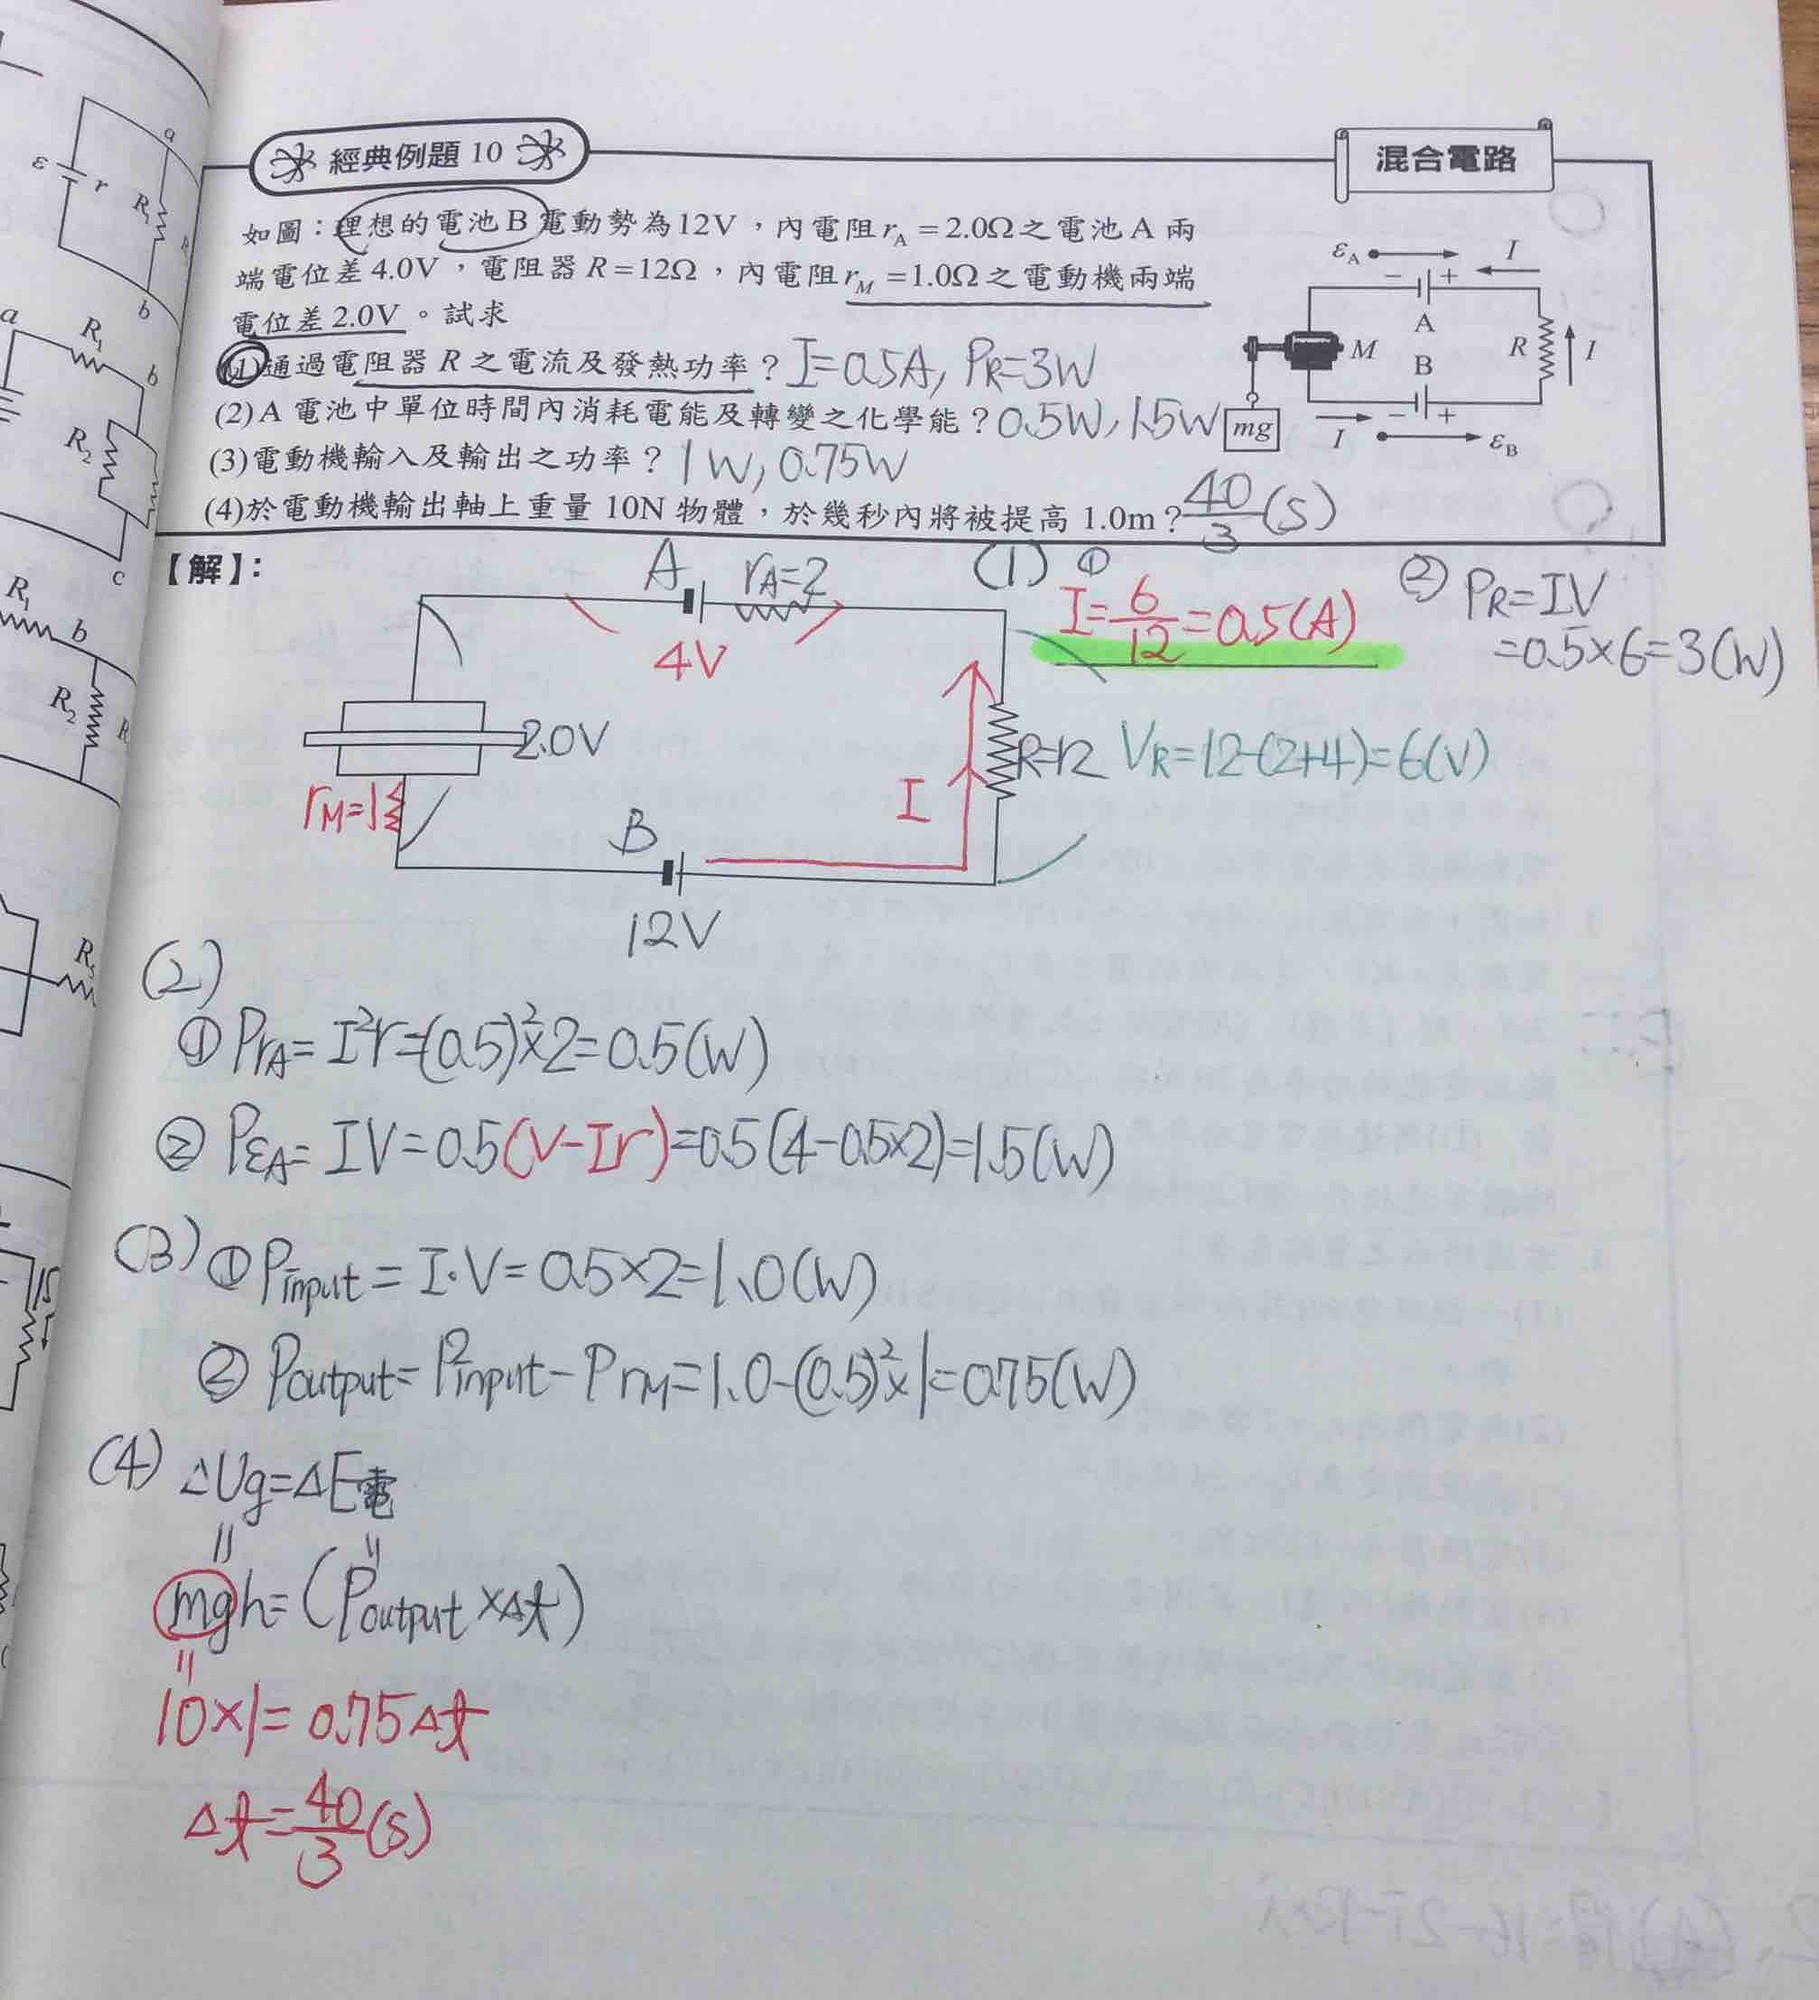 經典例題 10
混合電路
如圖：理想的電池B電動勢為12V，內電阻rA=2.0Ω之電池A兩
端電位差4.0V，電阻器R=12Ω，內電阻rM=1.0Ω之電動機兩端
電位差2.0V。試求
(1)通過電阻器R之電流及發熱功率？I=0.5A, PR=3W
(2)A電池中單位時間內消耗電能及轉變之化學能？0.5W, 1.5W
(3)電動機輸入及輸出之功率？1W, 0.75W
(4)於電動機輸出軸上重量10N物體，於幾秒內將被提高1.0m？40/3(s)
εA I
- +
A
M R I
B
mg - +
I εB
【解】：
A rA=2
4V
2.0V
rM=1
B
12V
I
R=12
VR=12-(2+4)=6(V)
(1) ① I=6/12=0.5(A)
② PR=IV
=0.5×6=3(W)
(2)
① PrA=I²r=(0.5)²×2=0.5(W)
② PεA=IV=0.5(V-Ir)=0.5(4-0.5×2)=1.5(W)
(3) ① Pinput=I·V=0.5×2=1.0(W)
② Poutput=Pinput-PrM=1.0-(0.5)²×1=0.75(W)
(4) ΔUg=ΔE電
mgh=(Poutput×Δt)
10×1=0.75Δt
Δt=40/3(s)
ε r a R1 b
a R1 b
R2
c
R1 b
R2
R5